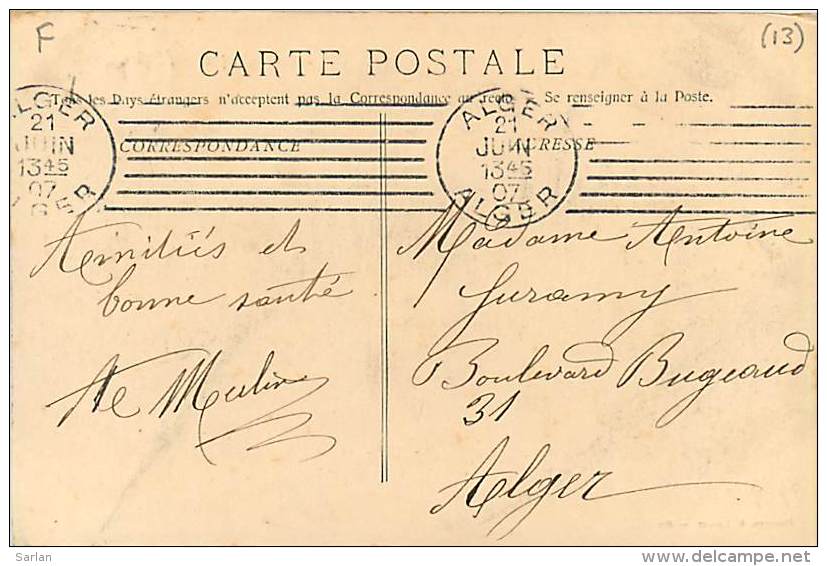 F
(13)
CARTE POSTALE
Tous les Pays étrangers n'acceptent pas la Correspondance au recto Se renseigner à la Poste.
ALGER
21
JUIN
13 45
07
ALGER
ALGER
21
JUIN
13 45
07
ALGER
CORRESPONDANCE
ADRESSE
Amitiés et
bonne santé
Madame Antoine
Boulevard Bugeaud
31
Alger
Sarlan
www.delcampe.net